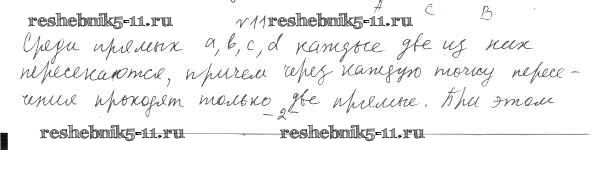 A C B
reshebnik5-11.ru №11 reshebnik5-11.ru
Среди прямых a, b, c, d каждые две из них
пересекаются, причем через каждую точку пересе-
чения проходят только две прямые. При этом
-2-
reshebnik5-11.ru reshebnik5-11.ru